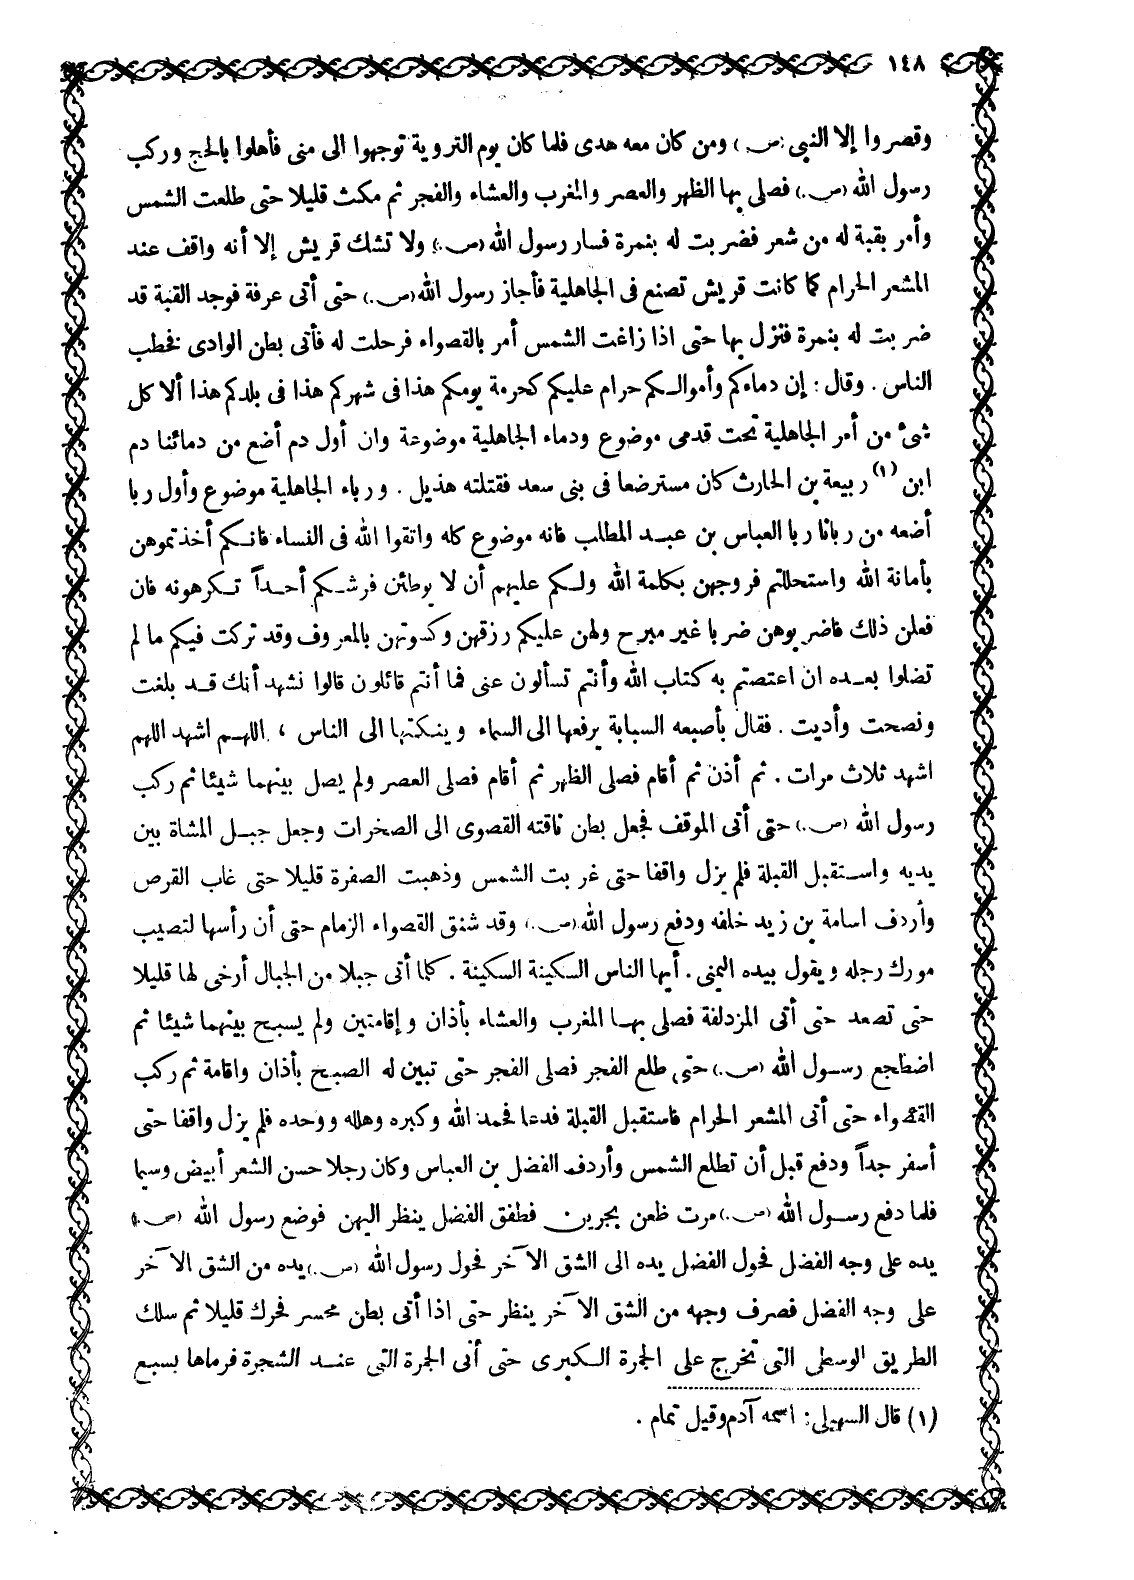 ١٤٨
وقصروا إلا النبى (ص.) ومن كان معه هدى فلما كان يوم التروية توجهوا الى منى فأهلوا بالحج وركب
رسول الله (ص.) فصلى بها الظهر والعصر والمغرب والعشاء والفجر ثم مكث قليلا حتى طلعت الشمس
وأمر بقبة له من شعر فضربت له بنمرة فسار رسول الله (ص.) ولا تشك قريش إلا أنه واقف عند
المشعر الحرام كما كانت قريش تصنع فى الجاهلية فأجاز رسول الله (ص.) حتى أتى عرفة فوجد القبة قد
ضربت له بنمرة فنزل بها حتى اذا زاغت الشمس أمر بالقصواء فرحلت له فأتى بطن الوادى فخطب
الناس . وقال : إن دماءكم وأموالكم حرام عليكم كحرمة يومكم هذا فى شهركم هذا فى بلدكم هذا ألا كل
شىء من أمر الجاهلية تحت قدمى موضوع ودماء الجاهلية موضوعة وان أول دم أضع من دمائنا دم
ابن (١) ربيعة بن الحارث كان مسترضعا فى بنى سعد فقتلته هذيل . ورباء الجاهلية موضوع وأول ربا
أضعه من ربانا ربا العباس بن عبد المطلب فانه موضوع كله واتقوا الله فى النساء فانكم أخذتموهن
بأمانة الله واستحللتم فروجهن بكلمة الله ولكم عليهم أن لا يوطئن فرشكم أحداً تكرهونه فان
فعلن ذلك فاضربوهن ضربا غير مبرح ولهن عليكم رزقهن وكسوتهن بالمعروف وقد تركت فيكم ما لم
تضلوا بعده ان اعتصتم به كتاب الله وأنتم تسألون عنى فما أنتم قائلون قالوا نشهد أنك قد بلغت
ونصحت وأديت . فقال بأصبعه السبابة يرفعها الى السماء وينكتها الى الناس ، اللهم اشهد اللهم
اشهد ثلاث مرات . ثم أذن ثم أقام فصلى الظهر ثم أقام فصلى العصر ولم يصل بينهما شيئا ثم ركب
رسول الله (ص.) حتى أتى الموقف فجعل بطن ناقته القصوى الى الصخرات وجعل جبل المشاة بين
يديه واستقبل القبلة فلم يزل واقفا حتى غربت الشمس وذهبت الصفرة قليلا حتى غاب القرص
وأردف اسامة بن زيد خلفه ودفع رسول الله (ص.) وقد شنق القصواء الزمام حتى أن رأسها لتصيب
مورك رجله ويقول بيده اليمنى . أيها الناس السكينة السكينة . كلما أتى جبلا من الجبال أرخى لها قليلا
حتى تصعد حتى أتى المزدلفة فصلى بها المغرب والعشاء بأذان وإقامتين ولم يسبح بينهما شيئا ثم
اضطجع رسول الله (ص.) حتى طلع الفجر فصلى الفجر حتى تبين له الصبح بأذان واقامة ثم ركب
القصواء حتى أتى المشعر الحرام فاستقبل القبلة فدعا فحمد الله وكبره وهلله ووحده فلم يزل واقفا حتى
أسفر جداً ودفع قبل أن تطلع الشمس وأردف الفضل بن العباس وكان رجلا حسن الشعر أبيض وسيما
فلما دفع رسول الله (ص.) مرت ظعن يجرين فطفق الفضل ينظر اليهن فوضع رسول الله (ص.)
يده على وجه الفضل فحول الفضل يده الى الشق الآخر فحول رسول الله (ص.) يده من الشق الآخر
على وجه الفضل فصرف وجهه من الشق الآخر ينظر حتى اذا أتى بطن محسر فحرك قليلا ثم سلك
الطريق الوسطى التى تخرج على الجمرة الكبرى حتى أتى الجمرة التى عند الشجرة فرماها بسبع
(١) قال السهيلى : اسمه آدم وقيل تمام .